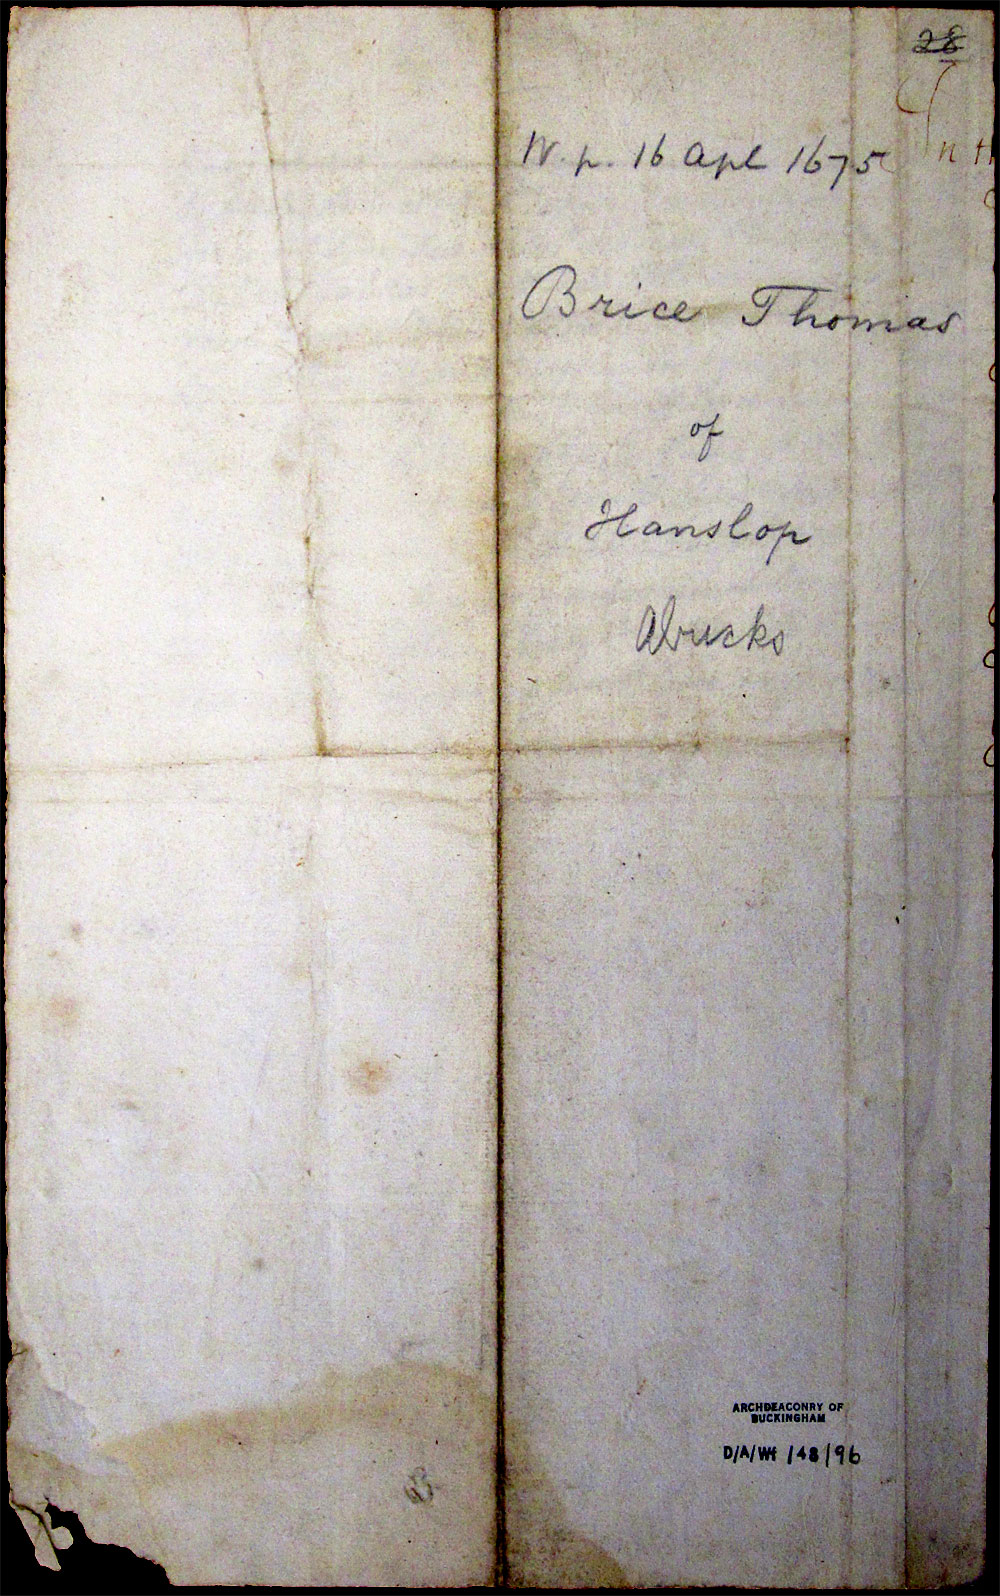 28
W. p. 16 Apl 1675
Brice Thomas
of
Hanslop
Abucks
ARCHDEACONRY OF
BUCKINGHAM
D/A/Wf/48/96